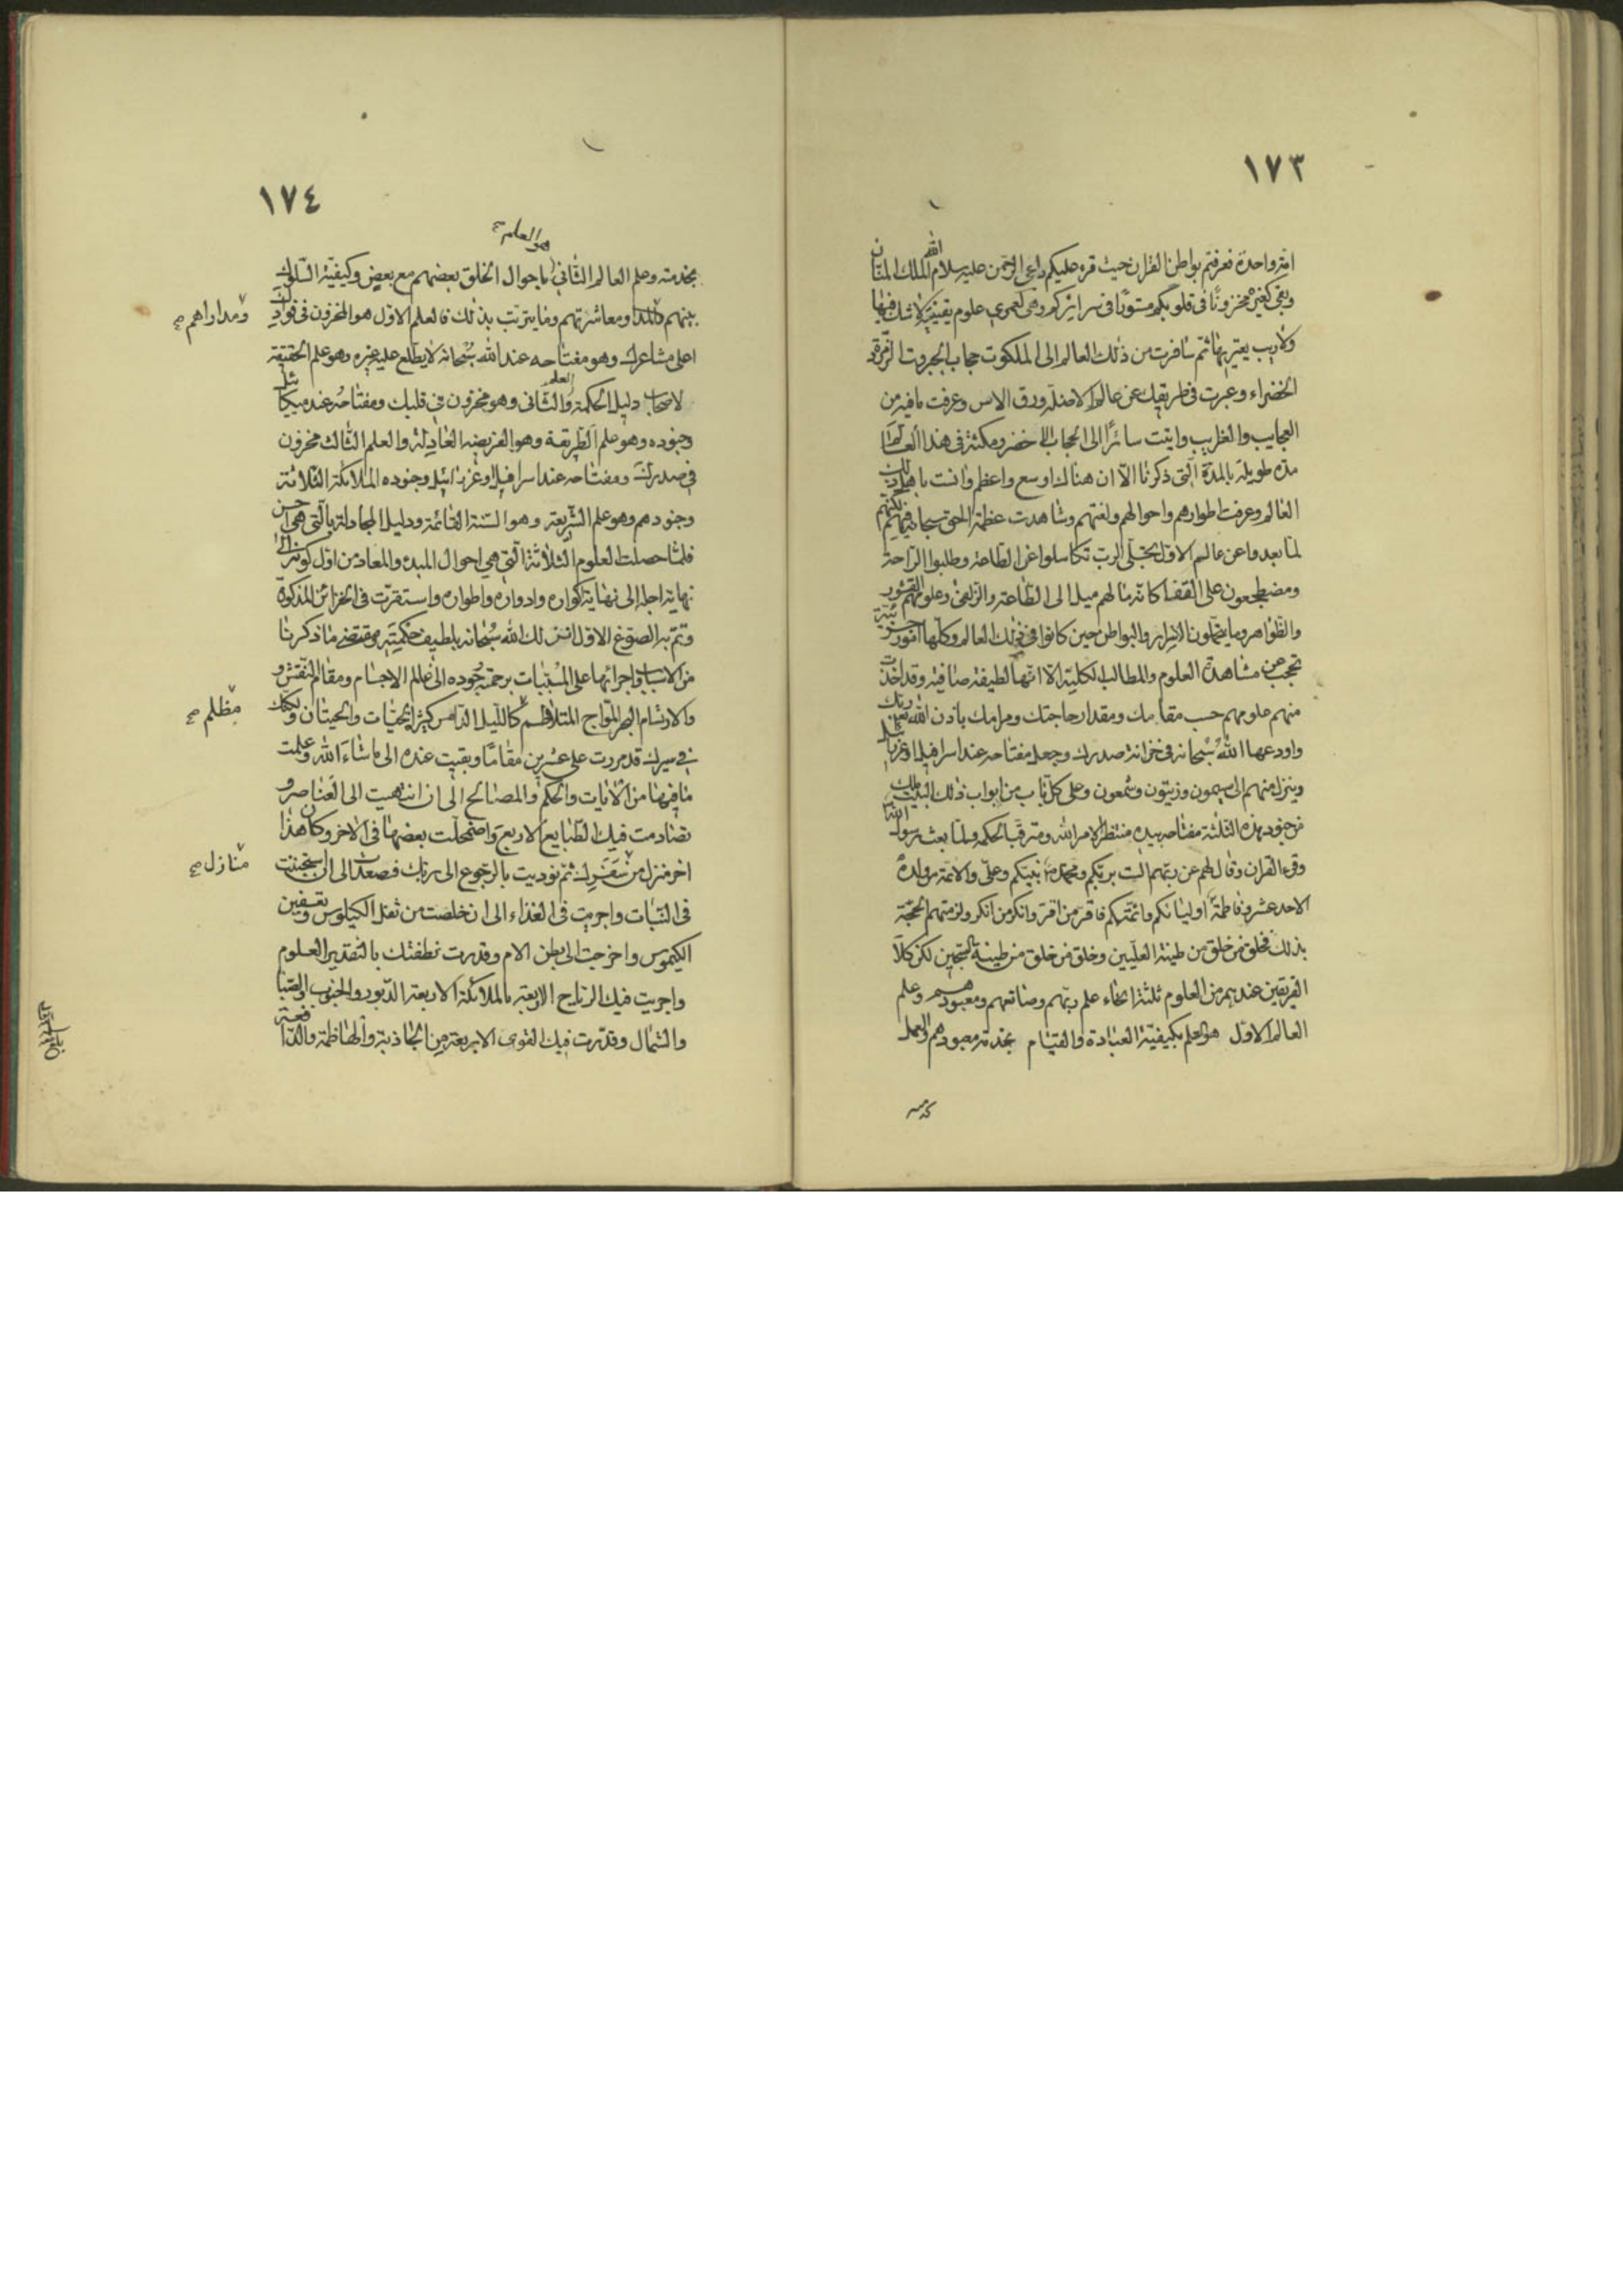 ١٧٣
امة واحدة فعرفتم بواطن القران حيث قرء عليكم داعى الرحمن عليه سلام الله الملك المنان
وبقى كغيره مخزونًا فى قلوبكم مستورًا فى سرايركم وهى لعمرى علوم يقينية لا شك فيها
ولا ريب يعتريها ثم سافرت من ذلك العالم الى الملكوت حجاب الجبروت الزمردة
الخضراء وعبرت فى طريقك عن عالم الاظلة ورق الاس وعرفت ما فيه من
العجايب والغرايب واتيت سائرًا الى الحجاب الاخضر ومكثت فى هذا العالم
مدة طويلة بالمدة التى ذكرنا الا ان هناك اوسع واعظم وانست باهل ذلك
العالم وعرفت اطوارهم واحوالهم ولغتهم وشاهدت عظمة الحق سبحانه فيهم لكنهم
لما بعدوا عن عالم الاول بتجلى الرب تكاسلوا عن الطاعة وطلبوا الراحة
ومضطجعون على القفا كانه ما لهم ميل الى الطاعة والزلفى وعلومهم القشور
والظواهر وما يتحملون الاسرار والبواطن حين كانوا فى ذلك العالم وكلها امور جزئية
تحجب عن مشاهدة العلوم والمطالب الكلية الا انها لطيفة صافية وقد اخذت
منهم علومهم حسب مقامك ومقدار حاجتك ومرامك باذن الله ربك
واودعها الله سبحانه فى خزانة صدرك وجعل مفتاحه عند اسرافيل وعزرائيل
وينزل منهم الى سيمون وزيتون وشمعون وعلى كل باب من ابواب ذلك البيت ملك
من جنود هذه الثلثة مفتاحه بيده منتظر لامر الله ومترقب لحكمه ولما بعث رسول الله
وقرء القران وقال لهم عن ربهم الست بربكم ومحمد نبيكم وعلى والائمة من ولده
الاحد عشر وفاطمة اولياءكم وائمتكم فاقر من اقر وانكر من انكر ولزمتهم الحجة
بذلك فخلق من خلق من طينة العليين وخلق من خلق من طينة السجين لكن كلا
الفريقين عندهم من العلوم ثلثة انحاء علم ربهم وصانعهم ومعبودهم وعلم
العالم الاول هو العلم بكيفية العبادة والقيام بخدمة معبودهم والعمل
بخدمته
١٧٤
هو العلم صح
بخدمته وعلم العالم الثانى باحوال الخلق بعضهم مع بعض وكيفية السلوك
بينهم ومعاشرتهم وما يترتب بذلك فالعلم الاول هو المخزون فى فؤادك
ومداراهم صح
اعلى مشاعرك وهو مفتاحه عند الله سبحانه لا يطلع عليه غيره وهو علم الحقيقة
لاصحاب دليل الحكمة والعلم الثانى وهو مخزون فى قلبك ومفتاحه عند ميكائيل
وجنوده وهو علم الطريقة وهو الفريضة العادلة والعلم الثالث مخزون
فى صدرك ومفتاحه عند اسرافيل وعزرائيل وجنوده الملائكة الثلاثة
وجنودهم وهو علم الشريعة وهو السنة القائمة ودليل المجادلة بالتى هى احسن
فلما حصلت العلوم الثلاثة التى هى احوال المبدء والمعاد من اول كونه الى
نهاية اجله الى نهاية اكواره وادواره واطواره واستقرت فى الخزائن المذكورة
وتم به الصوغ الاول انزلك الله سبحانه بلطيف حكمته ومقتضى ما ذكرنا
من الاسباب واجرائها على المسببات برحمته وجوده الى عالم الاجسام ومقام النقش و
والارتسام البحر المواج المتلاطم كالليل الدامس كثير الحيات والحيتان ولكنك
مظلم صح
فى سيرك قد مررت على عشرين مقامًا وبقيت عنده الى ما شاء الله وعلمت
ما فيها من الايات والحكم والمصالح الى ان انتهيت الى العناصر و
تصادمت فيك الطبايع الاربع واضمحلت بعضها فى الاخر وكان هذا
اخر منزل من سفرك ثم نوديت بالرجوع الى ربك فصعدت الى ان استجننت
منازل صح
فى النبات واجريت فى الغذاء الى ان خلصت من ثفل الكيلوس وتعفين
الكيموس واخرجت الى بطن الام وقدرت نطفتك بالتقدير المعلوم
واجريت فيك الرياح الاربعة بالملائكة الاربعة الدبور والجنوب والصبا
والشمال وقدرت فيك القوى الاربعة من الجاذبة والهاضمة والدافعة